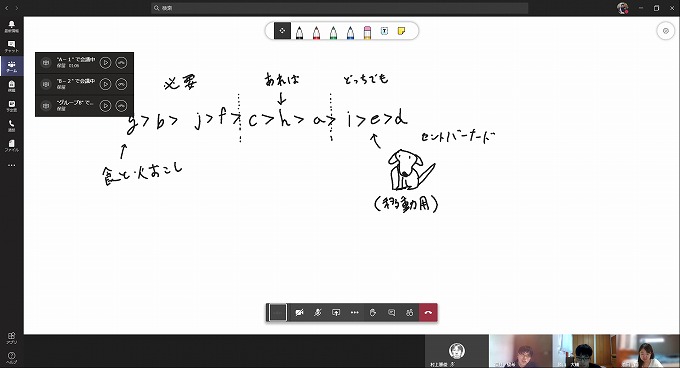 検索
最新情報
チャット
チーム
課題
予定表
通話
ファイル
アプリ
ヘルプ
"A－1" で会議中
保留 01:06
"B－2" で会議中
保留
"グループB" で...
保留
必要
あれば
どっちでも
g＞b＞ j＞f＞c＞h＞a＞i＞e＞d
食と火おこし
セントバーナード
(移動用)